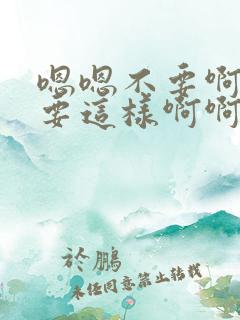 嗯嗯不要啊
要這樣啊啊
於鵬
未經同意禁止轉載